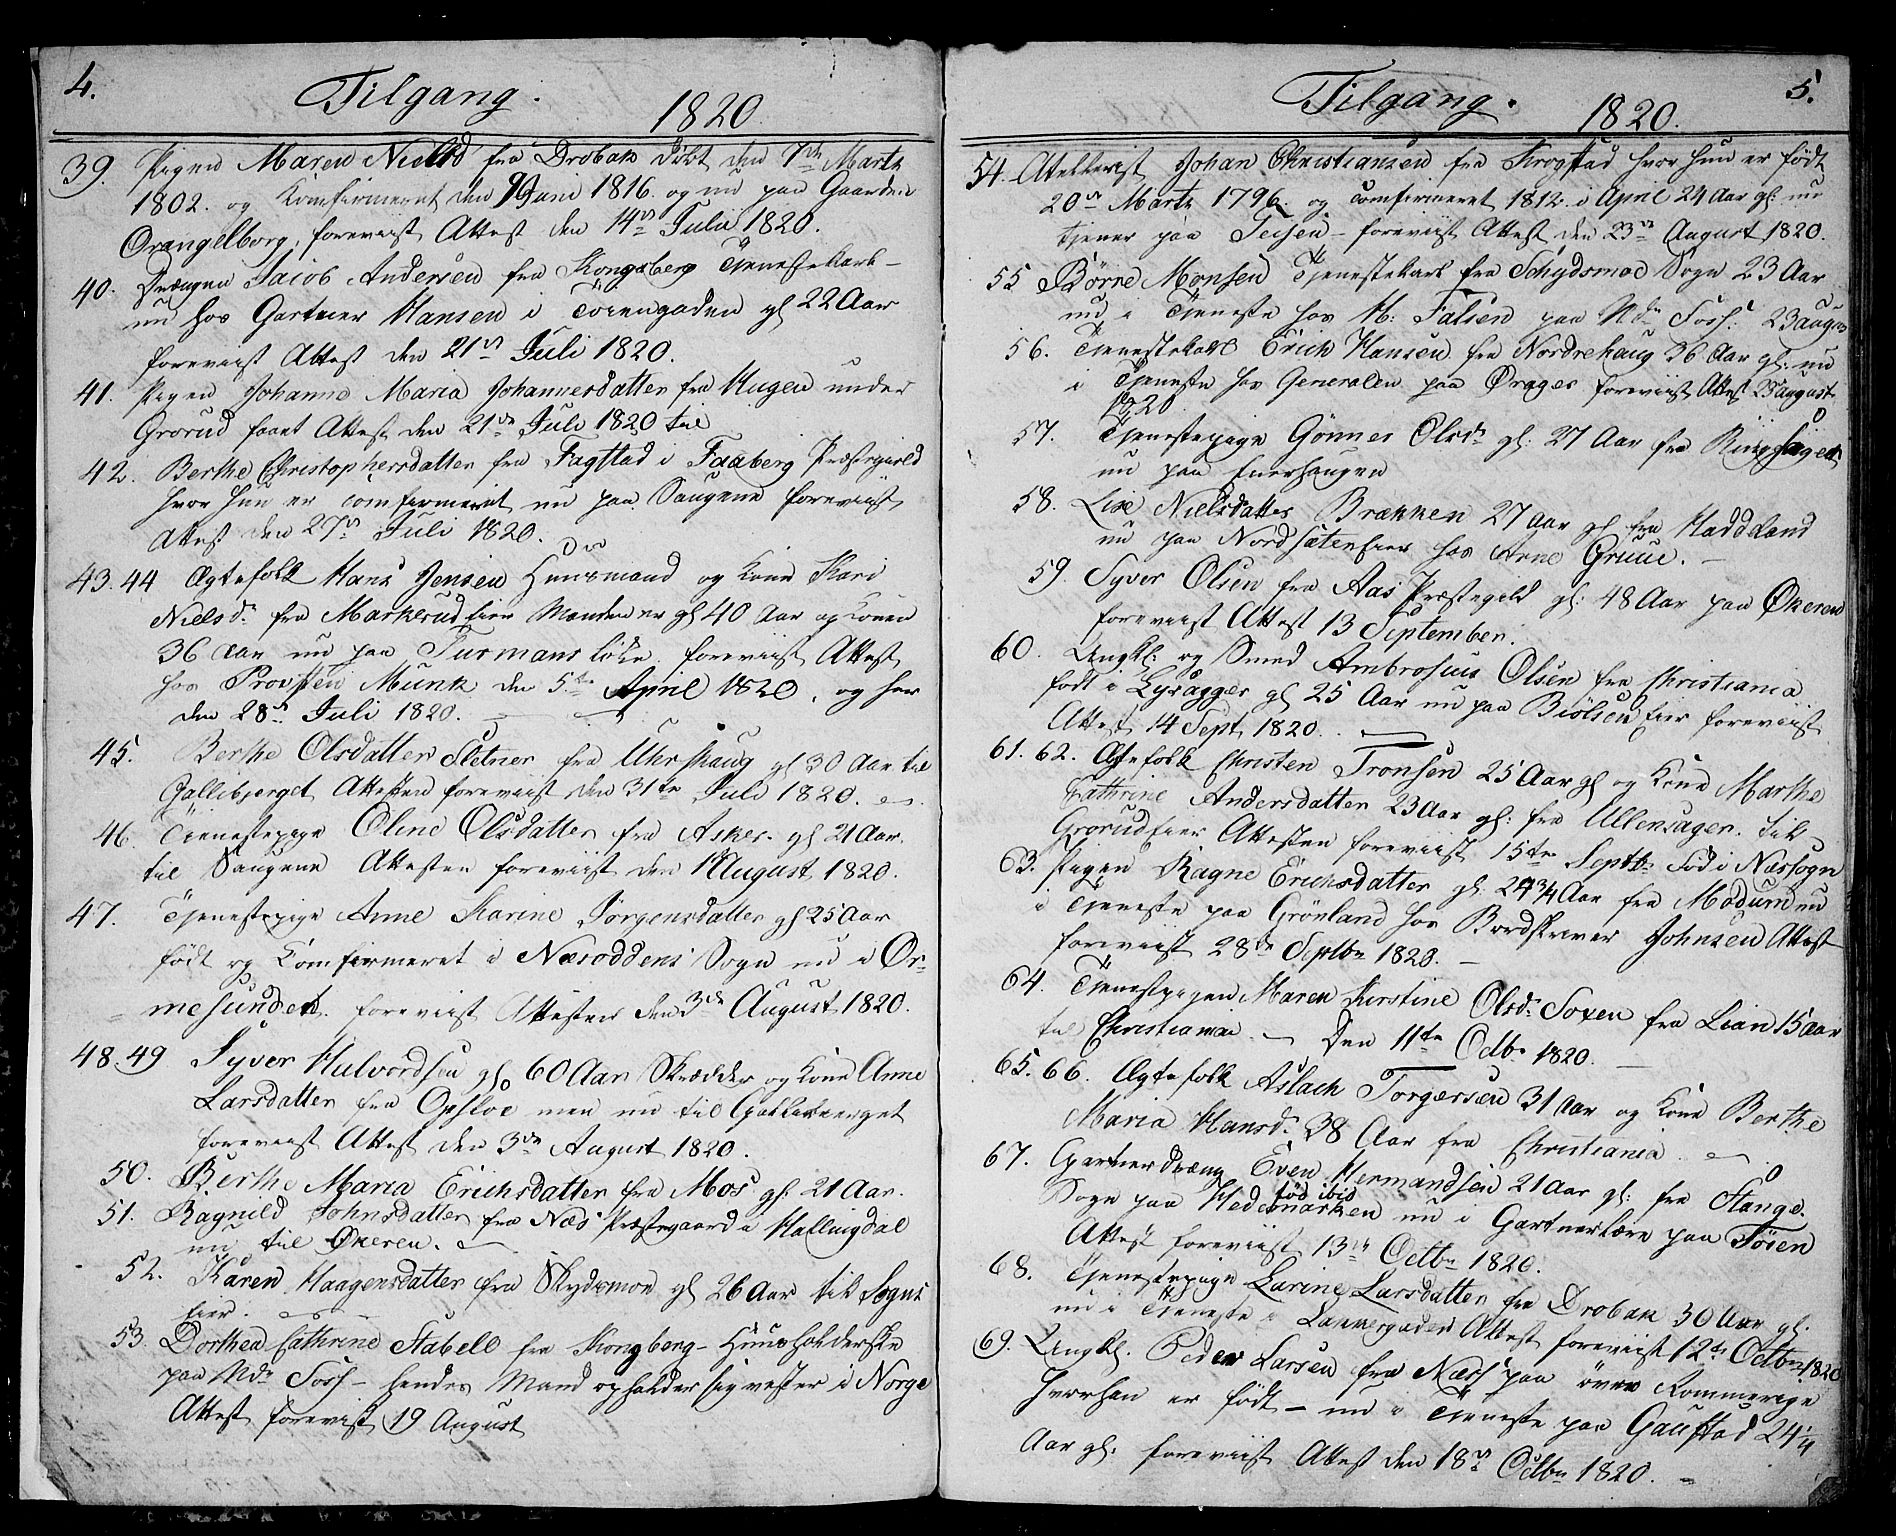 4.
Tilgang.
1820.
39. Pigen Maren Nielsd fra Drøbak døbt den 7de Martz
1802. og Konfirmeret den 9 Juni 1816. og nu paa Gaarden
Orangelborg, foreviist Attest den 14de Julii 1820.
40. Drængen Jacob Andersen fra Kongsberg Tjenestekarl
nu hos Gartner Hansen i Tøiengaden gl 22 Aar
foreviist Attest den 21de Juli 1820.
41. Pigen Johanne Maria Johannesdatter fra Haugen under
Grorud faaet Attest den 21de Juli 1820 til
42. Berthe Christophersdatter fra Fagstad i Faaberg Præstegield
hvor hun er comfirmeret nu paa Saugene foreviist
Attest den 27de Juli 1820.
43. 44 Ægtefolk Hans Jensen Huusmand og Kone Kari
Nielsd. fra Markerud Eier Manden er gl 40 Aar og Konen
36 Aar nu paa Furmans løkke foreviist Attest
hos Provsten Munk den 5te April 1820, og her
den 28de Juli 1820.
45. Berthe Olsdatter Sletner fra Uhrskaug gl 30 Aar til
Gallibjerget Attesten foreviist den 31te Juli 1820.
46. Tienestepige Oline Olsdatter fra Asker gl 21 Aar.
til Saugene Attesten foreviist den 1 August 1820.
47. Tjenestepige Anne Karine Jørgensdatter gl 25 Aar
født og Comfirmeret i Næsoddens Sogn nu i Or-
mesundet. foreviist Attesten den 3de August 1820.
48. 49 Syver Halvordsen gl. 60 Aar Skrædder og Kone Anne
Larsdatter fra Opsloe men nu til Galleberget
foreviist Attest den 3de August 1820.
50. Berthe Maria Erichsdatter fra Mos gl: 21 Aar.
51. Ragnild Johnsdatter fra Næs Præstegaard i Hallingdal
nu til Økeren.
52. Karen Haagensdatter fra Skydsmoe gl 26 Aar til Sogns
Eier.
53. Dorthea Cathrine Stabell fra Kongberg Huusholderske
paa Ndr Fosh - hendes Mand opholder sig vester i Norge
Attest forevist 19 August
5.
Tilgang.
1820.
54. Johan Christiansen fra Krogstad hvor hun er født
20de Martz 1796. og comfirmeret 1812 i April 24 Aar gl: nu
tjener paa Teisen foreviist Attest den 23de August 1820.
55 Børre Monsen Tjenestekarl fra Schydsmoe Sogn 23 Aar
nu i Tjeneste hos H: Falsen paa Ndr Fosh. 23 august
56. Tjenestekarl Erich Hansen fra Nordrehaug 36 Aar gl: nu
i Tjeneste hos Generalen paa foreviist Attest 23 august
1820
57. Tjenestepige Gønner Olsdr gl: 27 Aar fra Ringsager
nu paa Enerhaugen
58. Lise Nielsdatter Brækken 27 Aar gl fra Haddeland
nu paa Nordsæter Eier hos Arne Gruue.
59. Syver Olsen fra Aas Præstegield gl: 48 Aar paa Økeren
foreviist Attest 13 September.
60. Ungkl: og Smed Ambrosius Olsen fra Christiania
født i Lysagger gl 25 Aar nu paa Biølsen Eier foreviist
Attest 14 Sept 1820.
61. 62. Ægtefolk Christen Tronsen 25 Aar gl og Kone Marthe
Cathrine Andersdatter 23 Aar gl: fra Ullensager. til
Grorud Eier Attesten foreviist 15te Septbr
63. Pigen Ragne Erichsdatter gl: 24 3/4 Aar fra Modum nu Fød i Næs Sogn
i Tjeneste paa Grönland hos Bordskriver Johnsen Attest
foreviist 28de Septbr 1820.
64. Tjenestpigen Maren Kirstine Olsdr Soxen fra Lian 15 Aar
til Christiania. Den 11te Octbr 1820.
65. 66. Ægtefolk Aslach Torgersen 31 Aar og Kone Berthe
Maria Hansd. 38 Aar fra Christiania
67. Gartnerdræng Even Hermandsen 21 Aar gl: fra Stange.
Sogn paa Hedemarken fød ibid nu i Gartnerlære paa Tøien
Attest foreviist 13de Octbr 1820.
68. Tjenestepige Larine Larsdatter fra Drøbak 30 Aar gl.
nu i Tjeneste i Lakkergaden Attest foreviist 12te Octbr 1820
69. Ungkl. Peder Larsen fra Næss paa øvre Rommerige
hvor han er født - nu i Tjeneste paa Gaustad 24 1/4
Aar gl: foreviist Attest den 18de Octbr 1820.